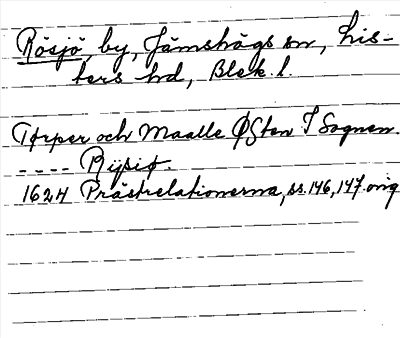 Rösjö, by, Jämshögs sn, Lis-
ters hd, Blek. l.
Torper och Maalle Østen I Sognen.
---- Rysiø.
1624 Prästrelationerna, ss. 146, 147. orig